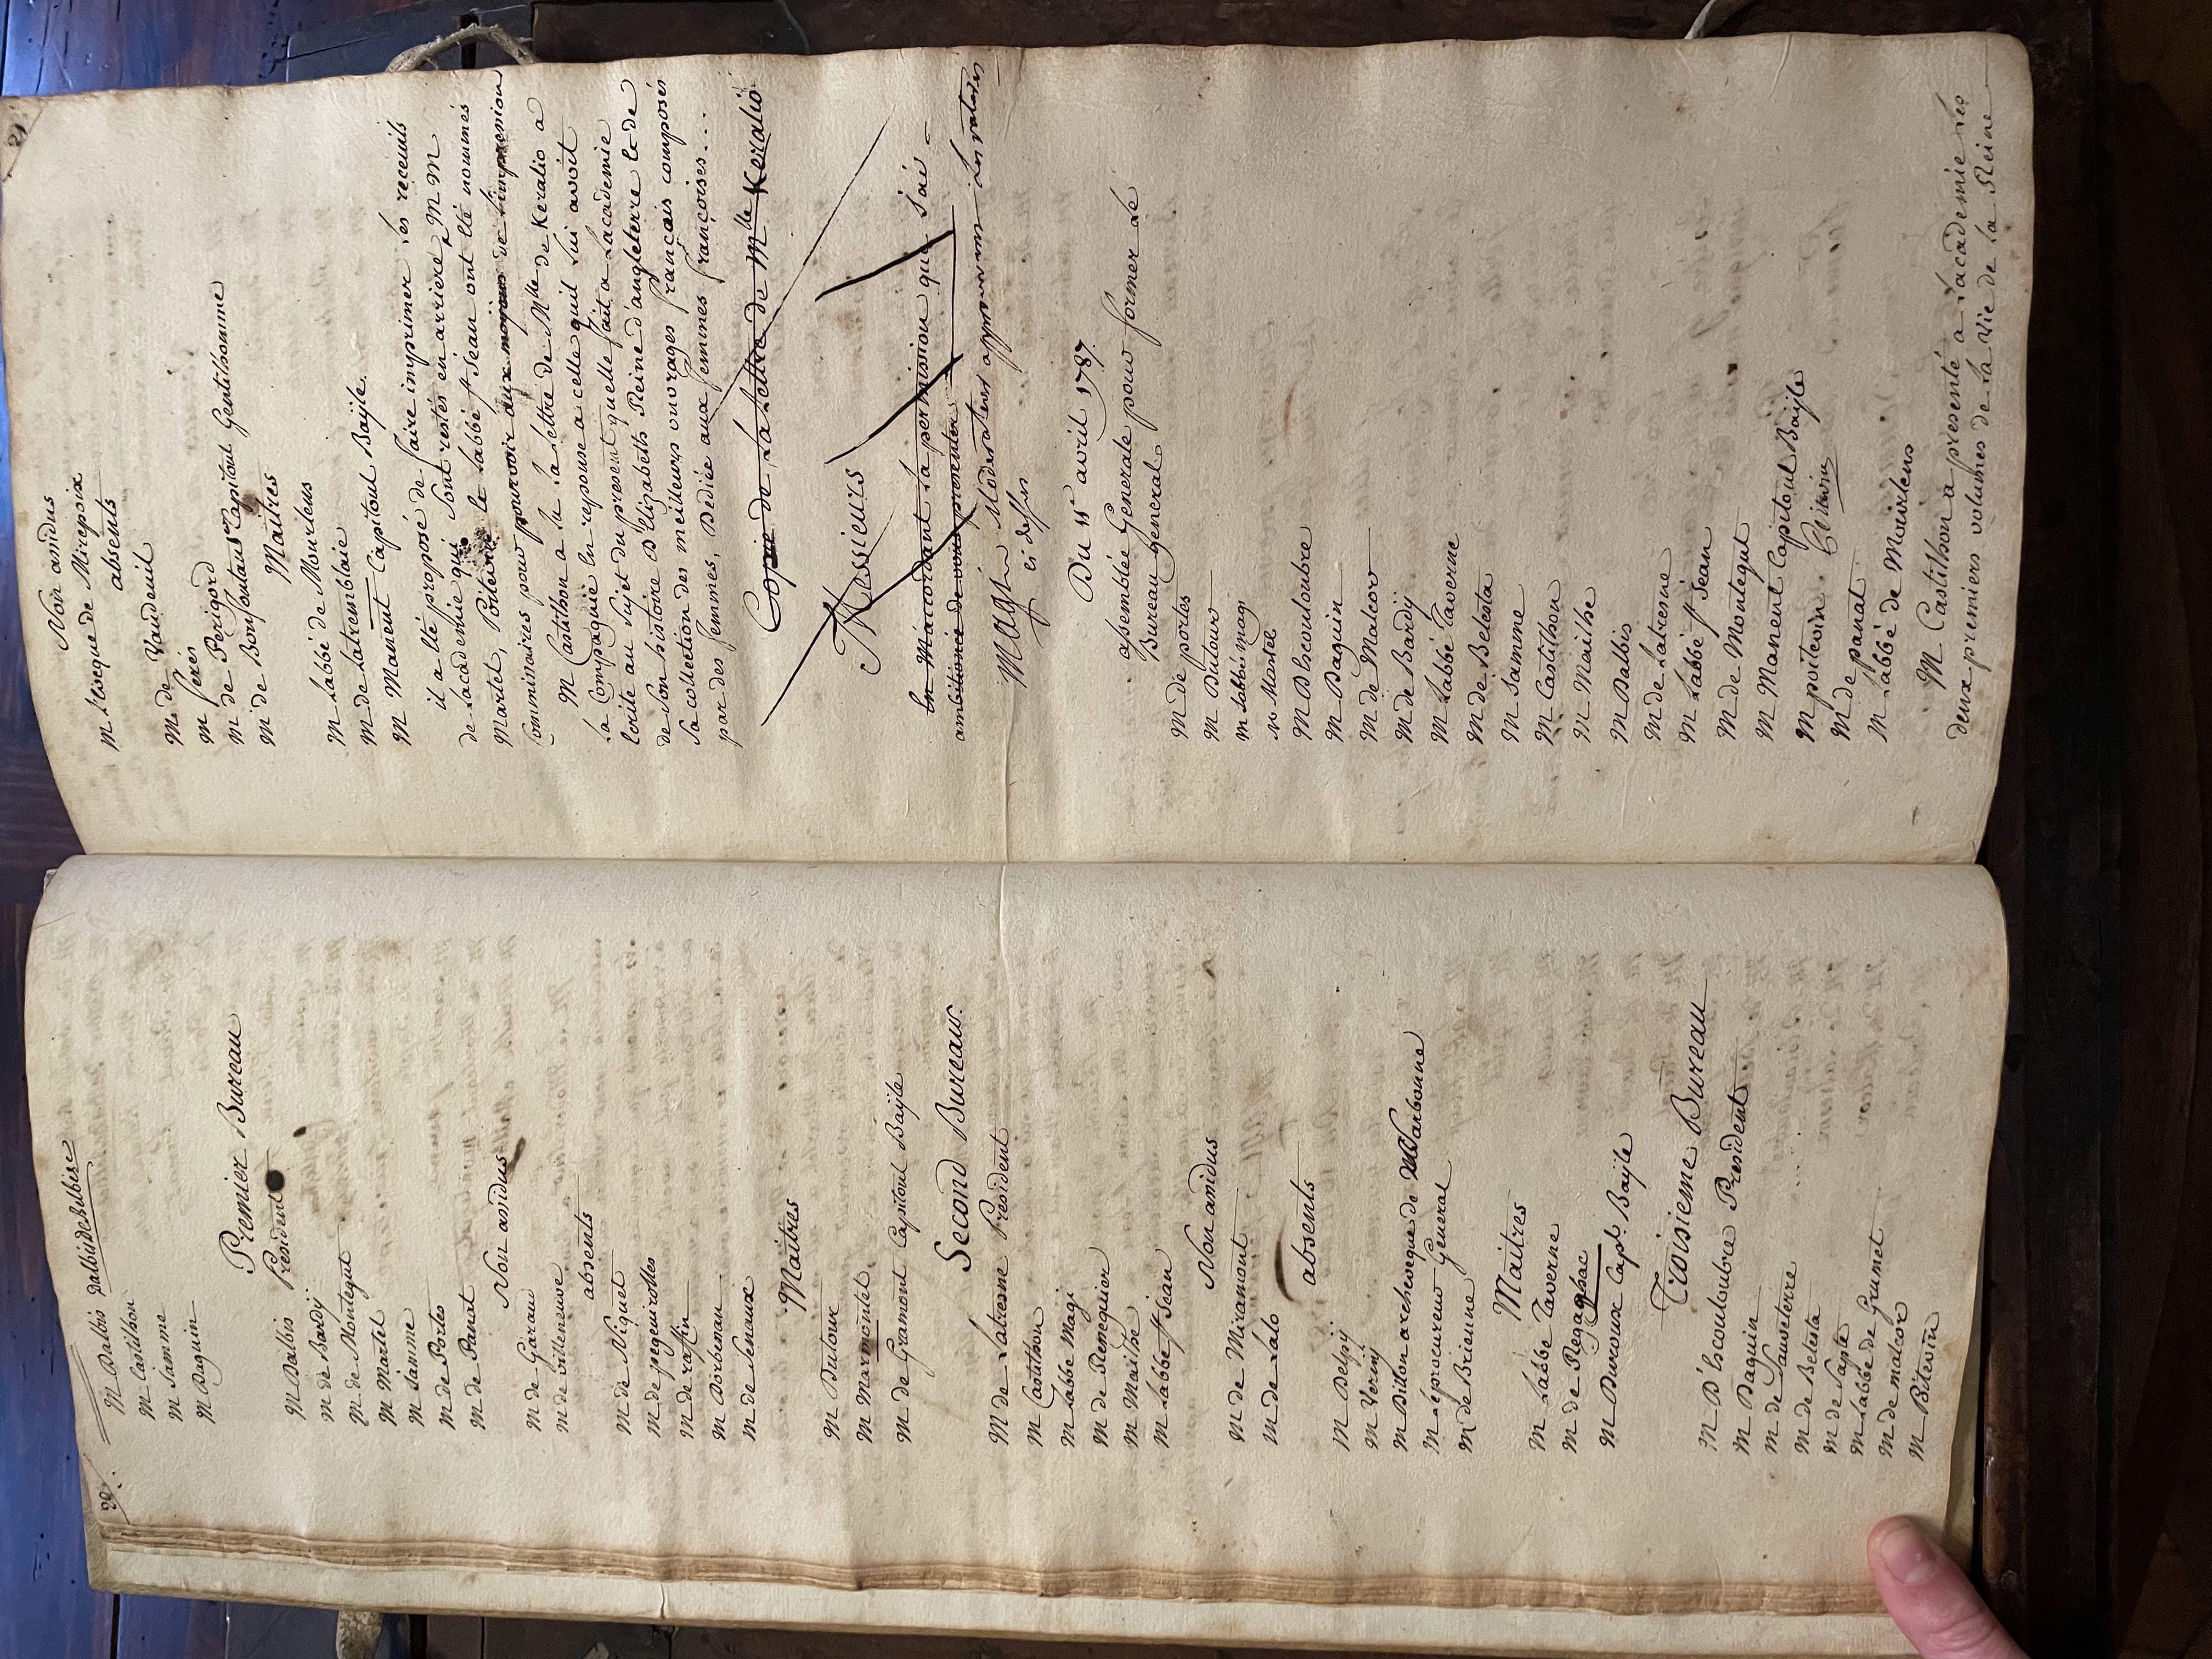 20.
M Balbis Dalbis de Belbeze
M Castilhon
M Jamme
M Daguin
Premier Bureau
M Balbis President
M de Bardÿ
M de Montegut
M Martel
M Jamme
M de Portes
M de Panat
Non assidus
M de Garaud
M de Villeneuve
absents
M de Niquet
M de pegueirolles
M de raffin
M Dorbenan
M de Senaux
Maitres
M Dutour
M Marmontel
M de Gramont Capitoul Baÿle
Second Bureau.
M de Latresne President
M Castilhon
M labbé Magi
M de Reneequier
M Mailhe
M labbé st Jean
Non assidus
M de Miramont
M de Lalo
absents
M Delpÿ
M Verniÿ
M Dillon archeveque de Narbonne
M le procureur General
M de Brienne
Maitres
M Labbé Taverne
M de Regagnac
M Duroux Capl. Baÿle
Troisieme Bureau
M D'Escouloubre President
M Daguin
M de Sauveterre
M de Belesta
M de Sapte
M labbé de Grumet
M de malcor
M Poitevin
21
Non assidus
M lEveque de Mirepoix
absents
M de Vaudreuil
M feres
M de Perigord
M de Bonfontan Capitoul Gentilhomme
Maitres
M Labbé de Mourlens
M de Latremblaie
M Manent Capitoul Baÿle.
il a été proposé de faire imprimer les receuils
de Lacademie qui sont restés en arriere M M
Martel, Poitevin et le Labbé st Jean ont été nommés
Commissaires pour pourvoir aux moyens de limpression
M Castilhon a lu la Lettre de Mlle de Keralio a
la Compagnie En reponse a celle quil lui avoit
Ecrite au sujet du present quelle fait a Lacademie
de son histoire D'Elizabeth Reine d'angleterre Et de
sa collection des meilleurs ouvrages francais composés
par des femmes, Dediée aux femmes françoises...
Copie de la Lettre de Mlle Keralio
Messieurs
En Maccordant la permission que j'ai
ambitionée de vous presenter
Magi Moderateur approuvant les ratures
ci dessus
Du 15 avril 1787.
assemblée Generale pour former le
Bureau general
M de portes
M Dutour
M labbé magi
M Martel
M D'Escouloubre
M Daguin
M de Malcor
M de Bardÿ
M Labbé Taverne
M de Belesta
M Jamme
M Castilhon
M Mailhe
M Balbis
M de Latresne
M Labbé st Jean
M de Montegut
M Manent Capitoul Baÿle
M poitevin
M de panat
M Labbé de Mourlens
M Castilhon a presenté a Lacademie les
deux premiers volumes de la Vie de la Reine